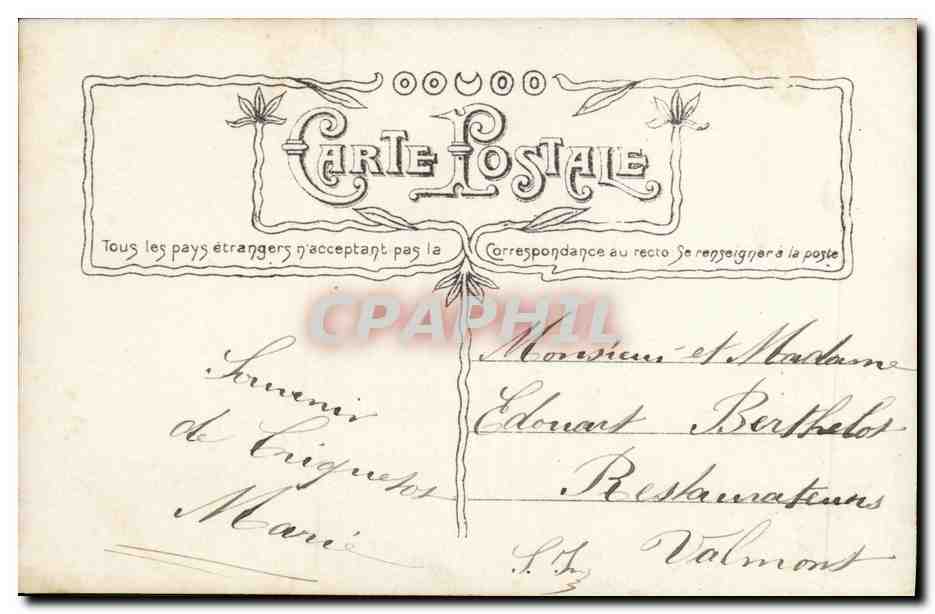 CARTE POSTALE
Tous les pays étrangers n'acceptant pas la Correspondance au recto Se renseigner à la poste
CPAPHIL
Souvenir
de Criquetot
Marie
Monsieur et Madame
Edouart Berthelot
Restaurateurs
Valmont
S. Inf